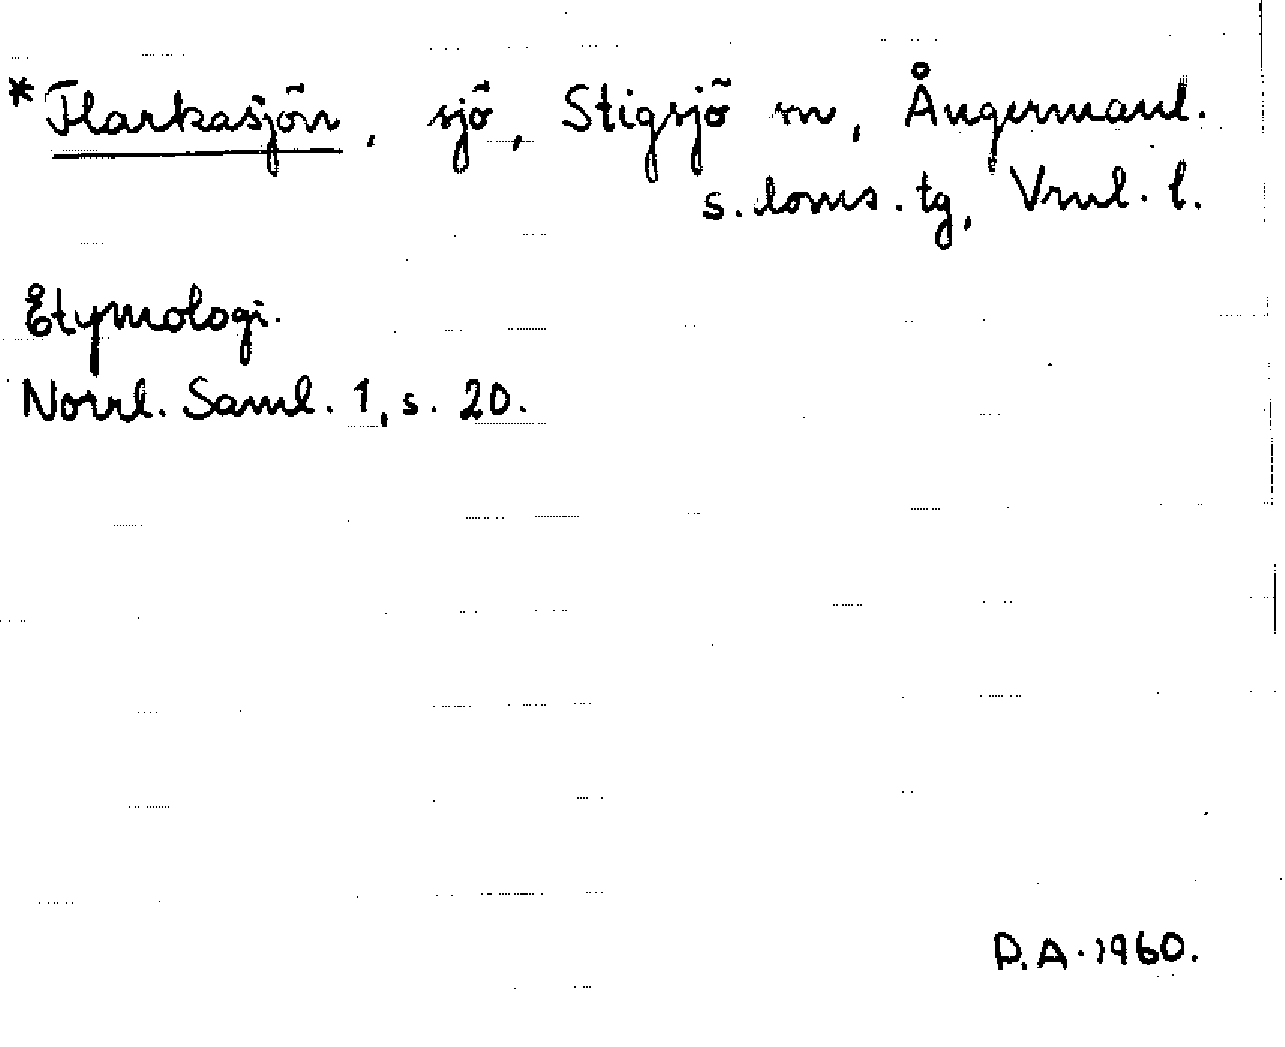 *Flarkasjön, sjö, Stigsjö sn, Ångermanl.
s. doms. tg, Vrnl. l.
Etymologi.
Norrl. Saml. 1, s. 20.
D.A. 1960.